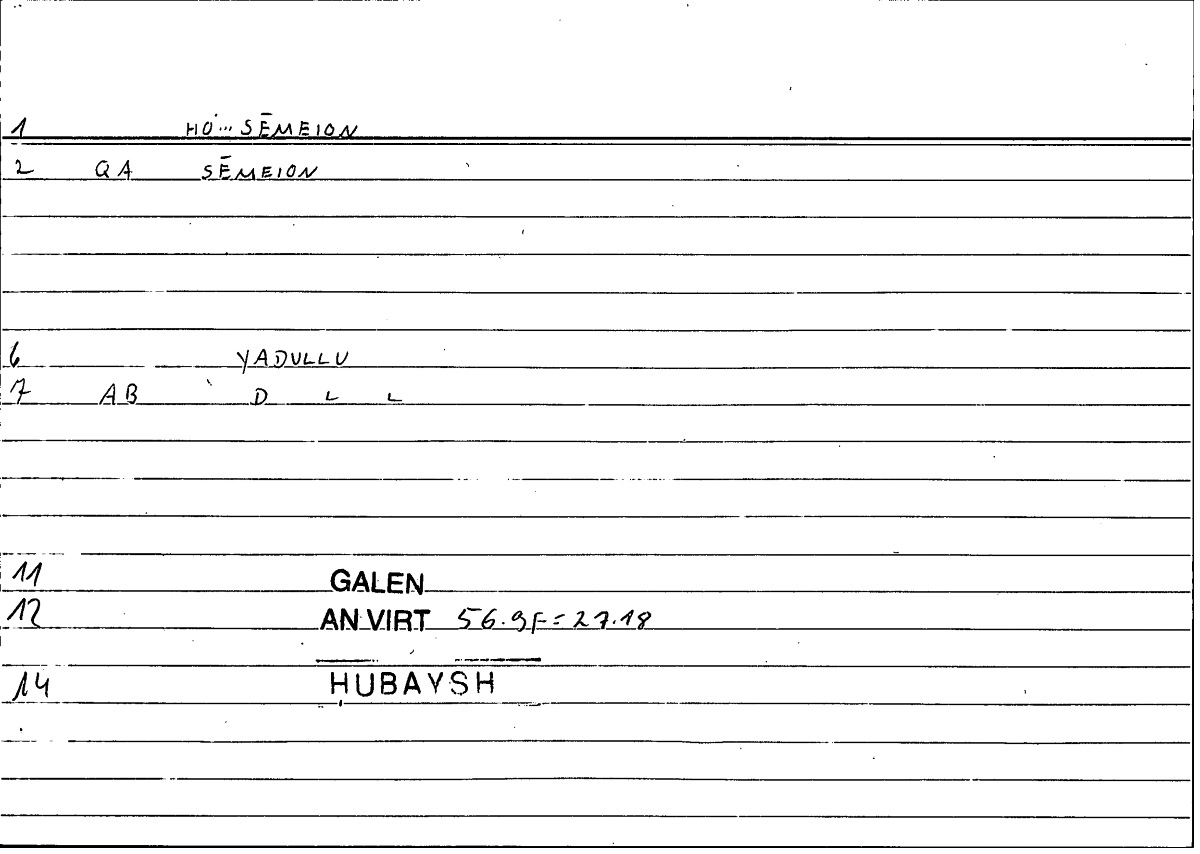 1 HO... SĒMEION
2 QA SĒMEION
6 YADULLU
7 AB D L L
11 GALEN
12 AN VIRT 56.9F=27.18
14 ḤUBAYSH